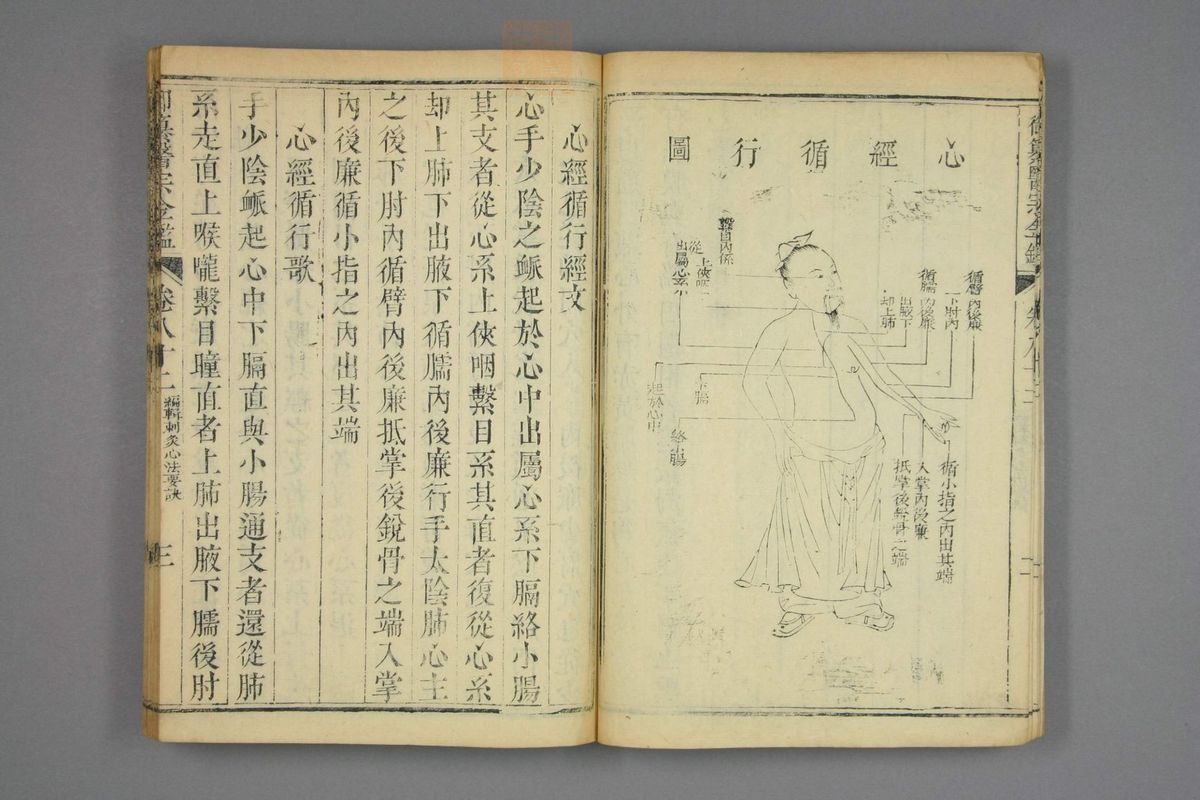 心經循行圖
循臂內後廉
下肘內
循臑內後廉
出腋下
却上肺
繫目內係
上俠咽
從
出屬心系
下膈
起於心中
絡小腸
循小指之內出其端
入掌內後廉
抵掌後銳骨之端
心經循行經文
心手少陰之脈起於心中出屬心系下膈絡小腸
其支者從心系上俠咽繫目系其直者復從心系
却上肺下出腋下循臑內後廉行手太陰肺心主
之後下肘內循臂內後廉抵掌後銳骨之端入掌
內後廉循小指之內出其端
心經循行歌
手少陰脈起心中下膈直與小腸通支者還從肺
系走直上喉嚨繫目瞳直者上肺出腋下臑後肘
卷八十二
編輯刺灸心法要訣
三